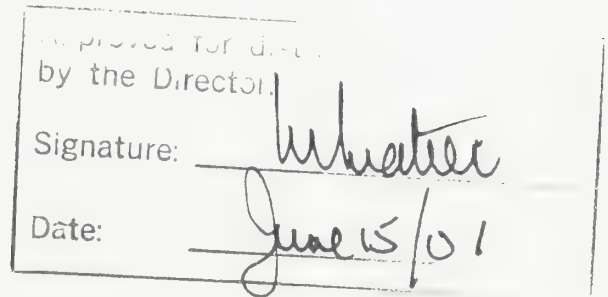 for
by the Director.
Signature:
Date: June 15/01